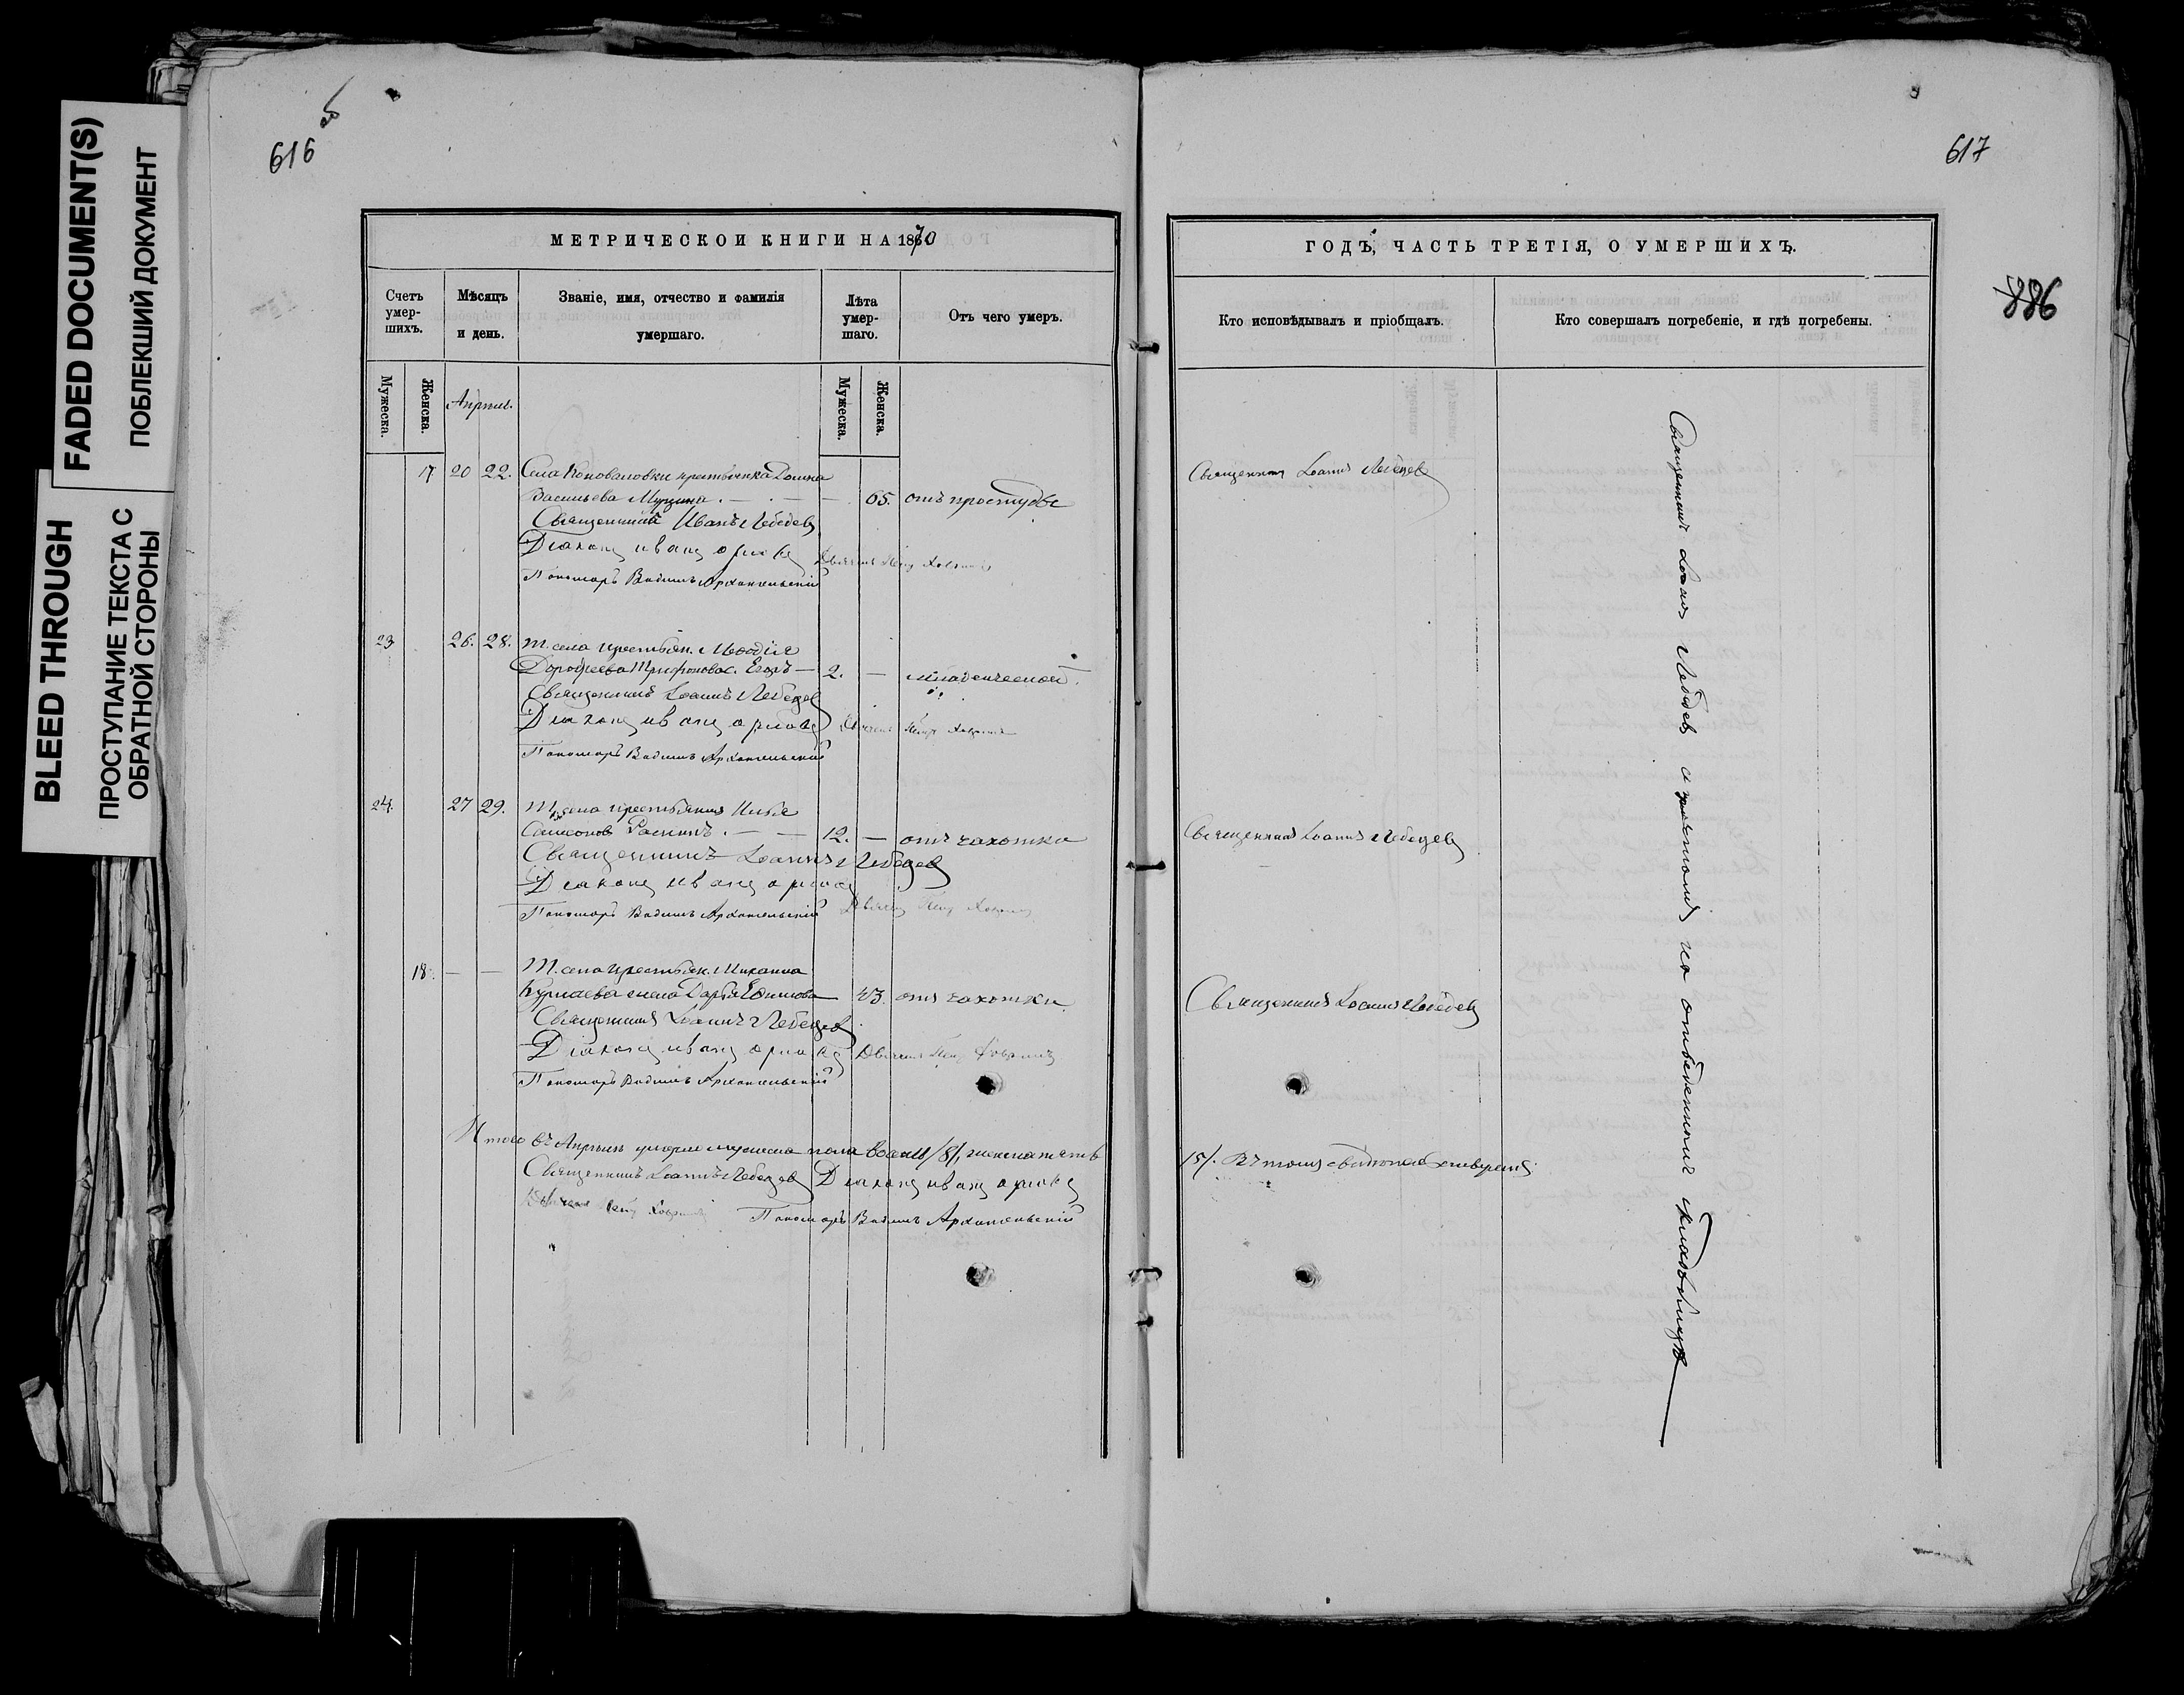 FADED DOCUMENT(S)
ПОБЛЕКШИЙ ДОКУМЕНТ
BLEED THROUGH
ПРОСТУПАНИЕ ТЕКСТА С
ОБРАТНОЙ СТОРОНЫ
616 об
МЕТРИЧЕСКОЙ КНИГИ НА 1870
Счетъ умершихъ.
Мѣсяцъ и день.
Званіе, имя, отчество и фамилія умершаго.
Лѣта умершаго.
Отъ чего умеръ.
Мужеска.
Женска.
Апрѣль.
Мужеска.
Женска.
17 20 22. Села Коноваловки крестьянка
Васильева 65. отъ простуды
Священникъ Иванъ Лебедевъ
Діаконъ Иванъ Орловъ
Пономарь Вадимъ Архангельскій
23 26. 28. Т. села крестьян.
Дорофеева Трифонова с. Егоръ — 2. — младенческой.
Священникъ Іоаннъ Лебедевъ
Діаконъ Иванъ Орловъ
Пономарь Вадимъ Архангельскій
24. 27 29. Т. села крестьянинъ Илья
12. — отъ чахотки
Священникъ Іоаннъ Лебедевъ
Діаконъ Иванъ Орловъ
Пономарь Вадимъ Архангельскій
18. — — Т. села крестьян. Михаила
жена Дарья 43. отъ чахотки
Священникъ Іоаннъ Лебедевъ
Діаконъ Иванъ Орловъ
Пономарь Вадимъ Архангельскій
Итого въ Апрѣлѣ умерло мужеска пола восемь /8/, женска пять
Священникъ Іоаннъ Лебедевъ Діаконъ Иванъ Орловъ
Пономарь Вадимъ Архангельскій
617
886
ГОДЪ, ЧАСТЬ ТРЕТІЯ, О УМЕРШИХЪ.
Кто исповѣдывалъ и пріобщалъ.
Кто совершалъ погребеніе, и гдѣ погребены.
Священникъ Іоаннъ Лебедевъ
Священникъ Іоаннъ Лебедевъ
Священникъ Іоаннъ Лебедевъ
/5/. Въ томъ
Священникъ Іоаннъ Лебедевъ съ причтомъ на отведенномъ кладбищѣ